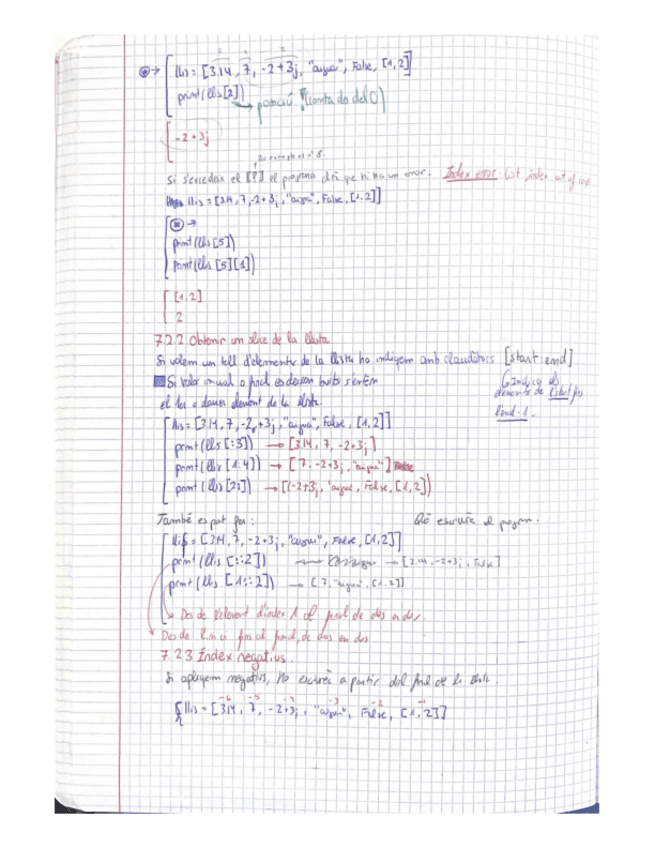 0 1 2
llis = [3.14, 7, -2+3j, "aigua", False, [1,2]]
print(llis[2])
posició (contado del 0)
-2+3j
Si s'excedeix el [?] el programa dirà que hi ha un error. Index error: list index out of range
llis = [3.14, 7, -2+3j, "aigua", False, [1,2]]
print(llis[5])
print(llis[5][1])
[1,2]
2
7.2.2 Obtenir un slice de la llista
Si volem un tell d'elements de la llista ho indiquem amb claudàtors [start:end]
Si valor inicial o final es deixen buits s'entén
el 1er o darrer element de la llista.
Indica els
elements de l'start fins
l'end-1
llis = [3.14, 7, -2+3j, "aigua", False, [1,2]]
print(llis[:3]) → [3.14, 7, -2+3j]
print(llis[1:4]) → [7, -2+3j, "aigua"]
print(llis[2:]) → [(-2+3j, "aigua", False, [1,2])
També es pot fer:
Què escriuria el program.
llis = [3.14, 7, -2+3j, "aigua", False, [1,2]]
print(llis[::2]) → [3.14, -2+3j, False]
print(llis[1::2]) → [7, "aigua", [1,2]]
Des de l'element d'index 1 al final de dos a dos
Des de l'inici fins al final, de dos en dos
7.2.3 Índex negatius.
Si apliquem negatius, ho escriurà a partir del final de la llista.
-6 -5 -4 -3 -2 -1
llis = [3.14, 7, -2+3j, "aigua", False, [1,2]]